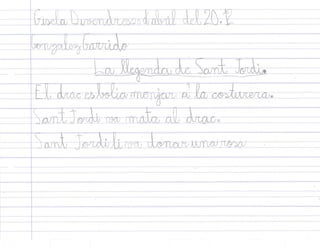 Gisela Divendres d abril del 20.
Gonzalez Garrido
La llegenda de Sant Jordi.
El drac es bolia menjar a la costurera.
Sant Jordi va mata al drac.
Sant Jordi li va donar una rosa